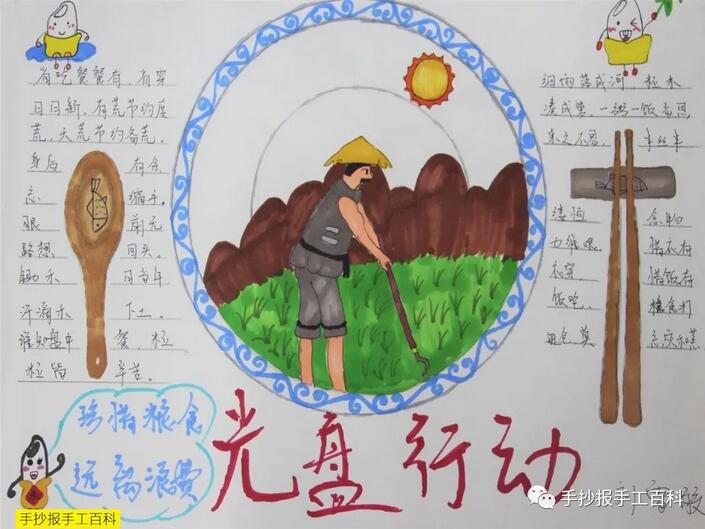 有吃餐餐有，有穿
日日新，有荒节约度
荒，无荒节约备荒。
身后 有余
忘 缩手，
眼 前无
路想 回头。
锄禾 日当午
汗滴禾 下土。
谁知盘中 餐，粒
粒皆 辛苦。
细雨落成河，粒米
凑成箩，一粥一饭当思
来之不易， 半丝半
缕恒 念物
力维艰 惜衣有
衣穿， 惜饭有
饭吃， 粮食打
进仓莫
珍惜粮食
远离浪费
光盘行动
手抄报手工百科
手抄报手工百科